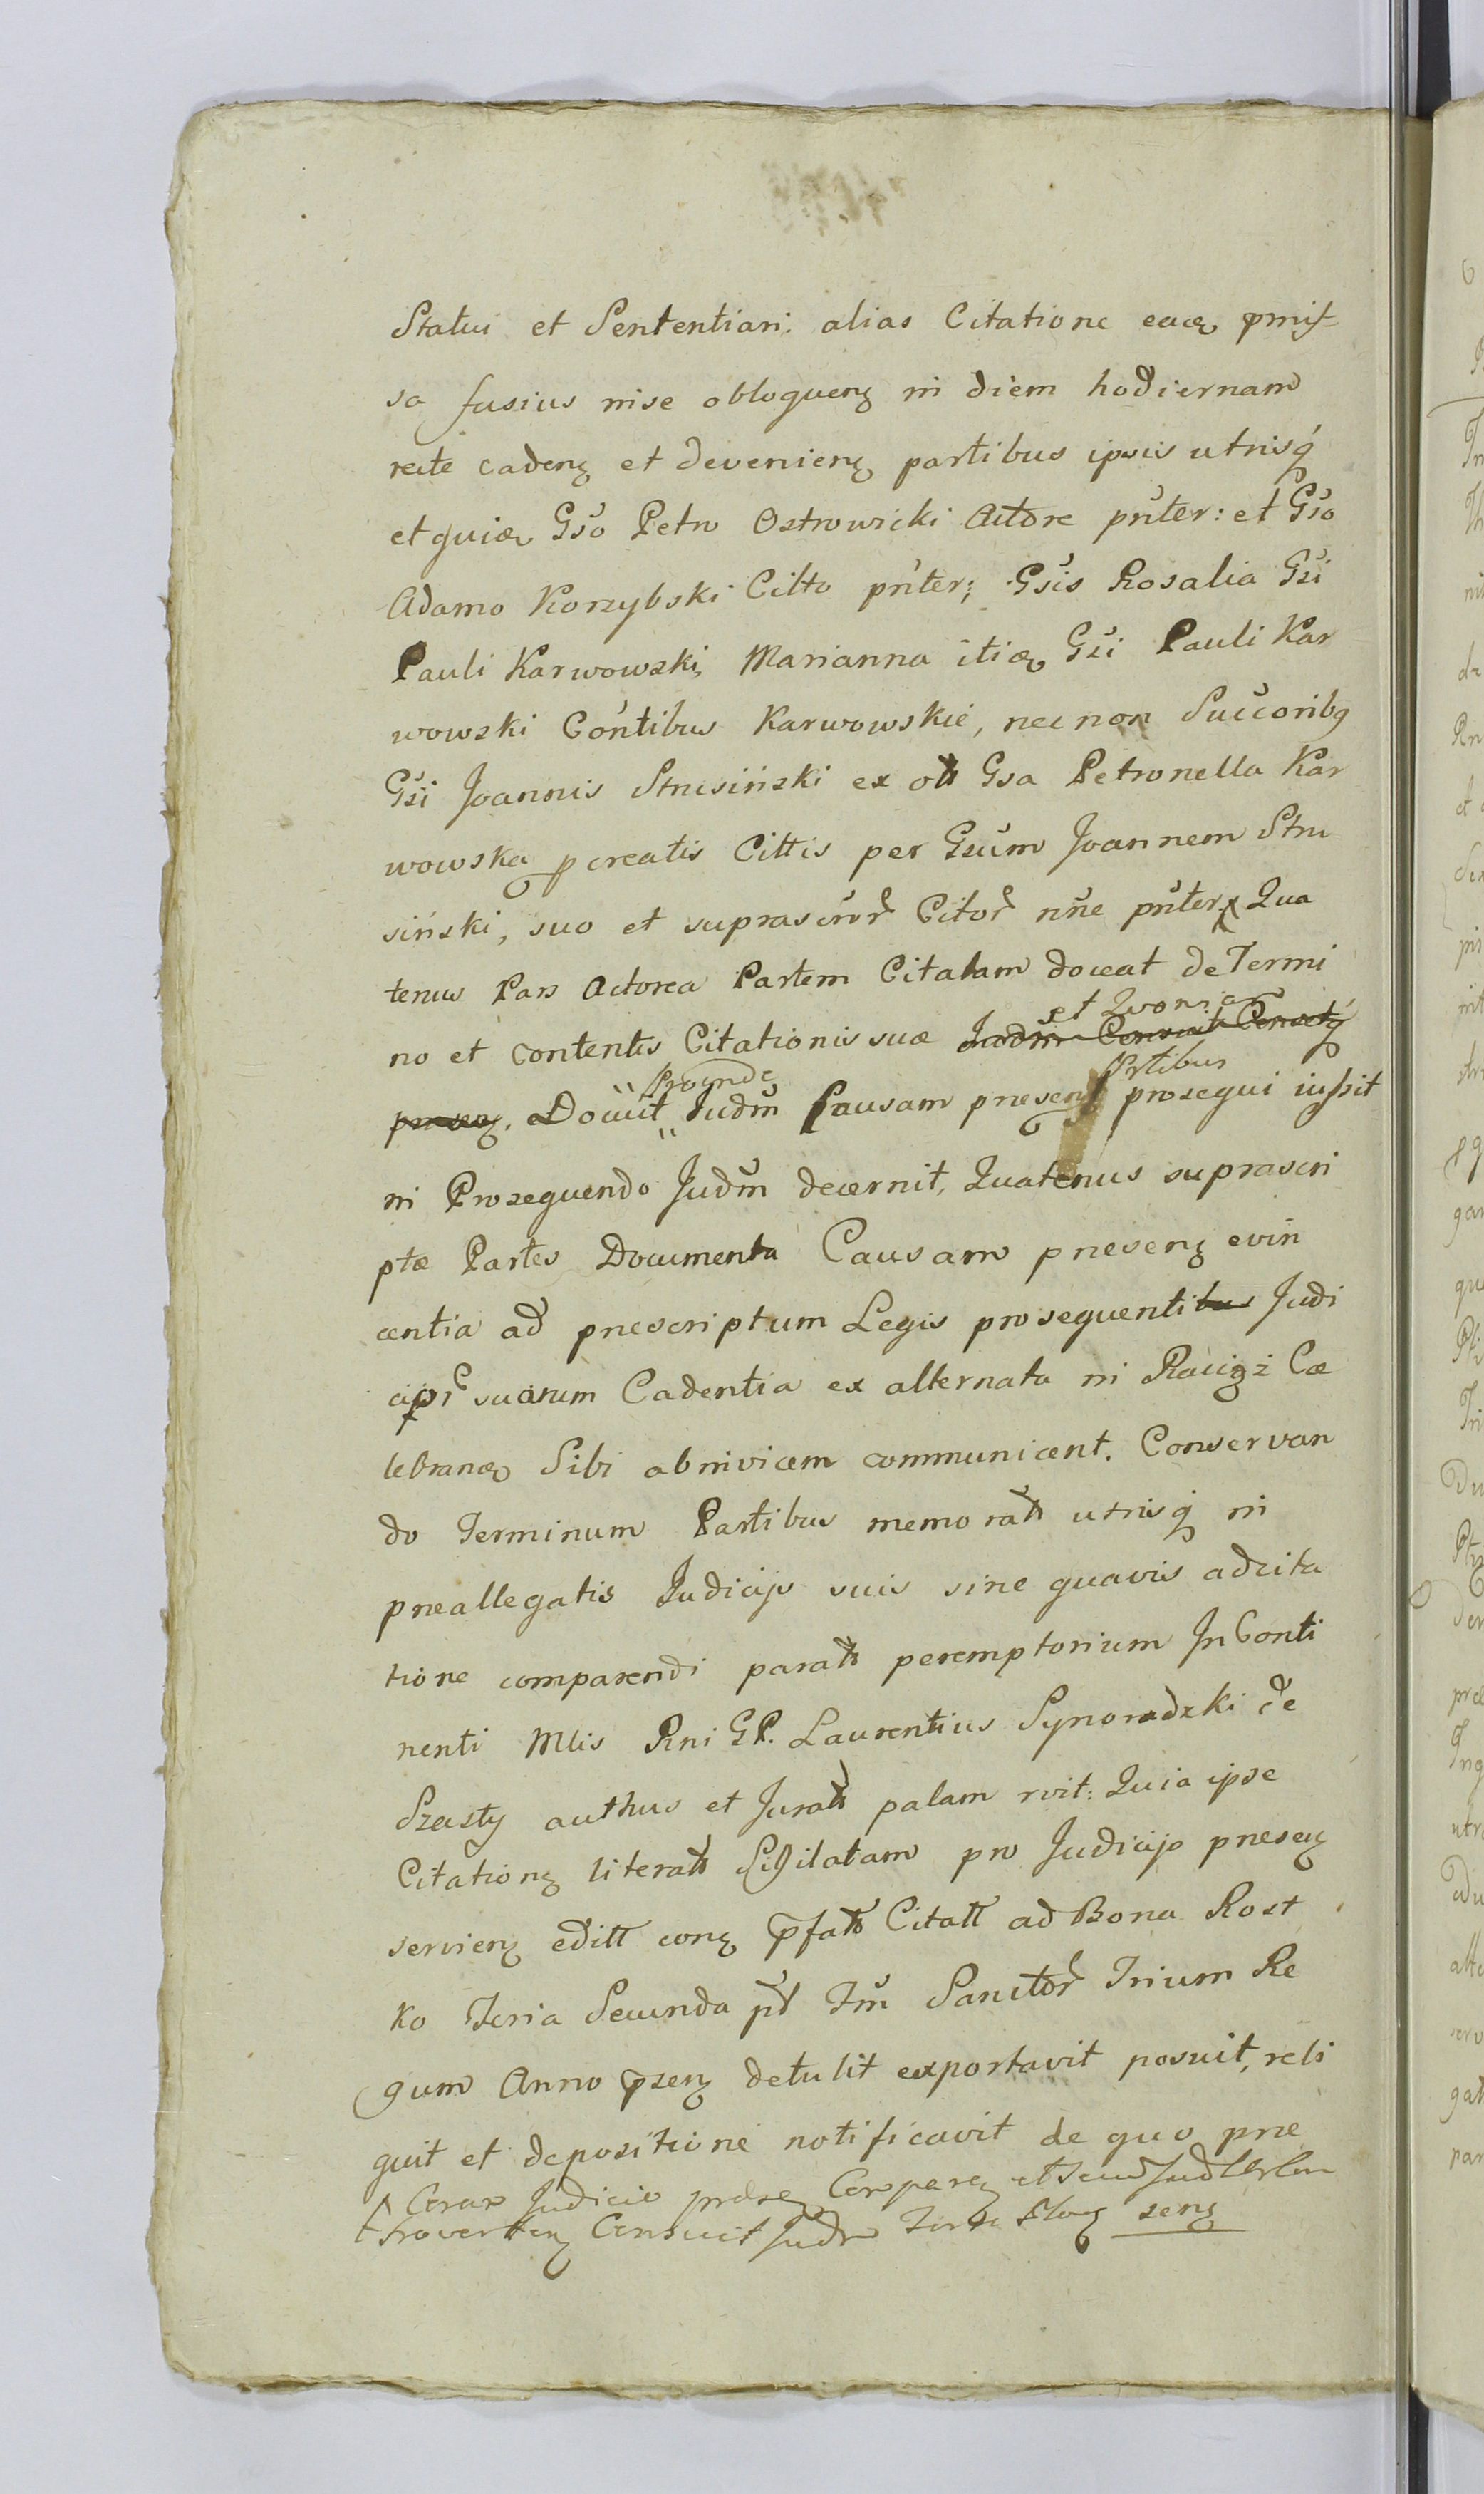 Statui et Sententiari: alias Citatione eaq, pmis-
sa fusius in se obloquenꝫ in diem hodiernam
recte cadenꝫ et devenienꝫ partibus ipsis utrisq́
et quia Gso Petro Ostrowicki Actore pnter: et Gso
Adamo Korzybski Citto pnter; Gsis Rosalia Gsi
Pauli Karwowski, Marianna itiaq, Gsi Pauli Kar
wowski Contibus Karwowskie, nec non Succoribꝫ
Gsi Joannis Strusiński ex ott Gsa Petronella Kar
wowska pcreatis Cittis per Gsum Joannem Stru
siński, suo et suprascror Citor nne pnter, Qua
tenus Pars Actorea Partem Citatam doceat de Termi
et Quonia
no et contentis Citationis suæ Judm Censuit Censetq́
Proinde Ptibus
presenꝫ. Docuit Judm Causam presenꝫ prosequi iussit
in Prosequendo Judm decernit, Quatenus suprascri
ptæ Partes Documenta Causam presenꝫ evin
centia ad prescriptum Legis prosequentibus Judi
cior suorum Cadentia ex alternata in Raciąż Cæ
lebranq, Sibi abinvicem communicent. Conservan
do Terminum Partibus memoratt utrisq́ in
preallegatis Judicijs suis sine quavis adcita
tione comparendi paratt peremptorium In Conti
nenti Mlis Rni GP. Laurentius Synoradzki de
Szasty authus et Juratt palam rvit: Quia ipse
Citationꝫ literatt Sigilatam pro Judicijs presenꝫ
servienꝫ editt conꝫ pfatt Citatt ad Bona Rost
ko Feria Secunda pt Fm Sanctor Trium Re
gum Anno psenꝫ detulit exportavit posuit, reli
quit et depositione notificavit de quo pre
Coram Judicio presenꝫ Comparenꝫ et
trovertenꝫ Censuit Judm senꝫ